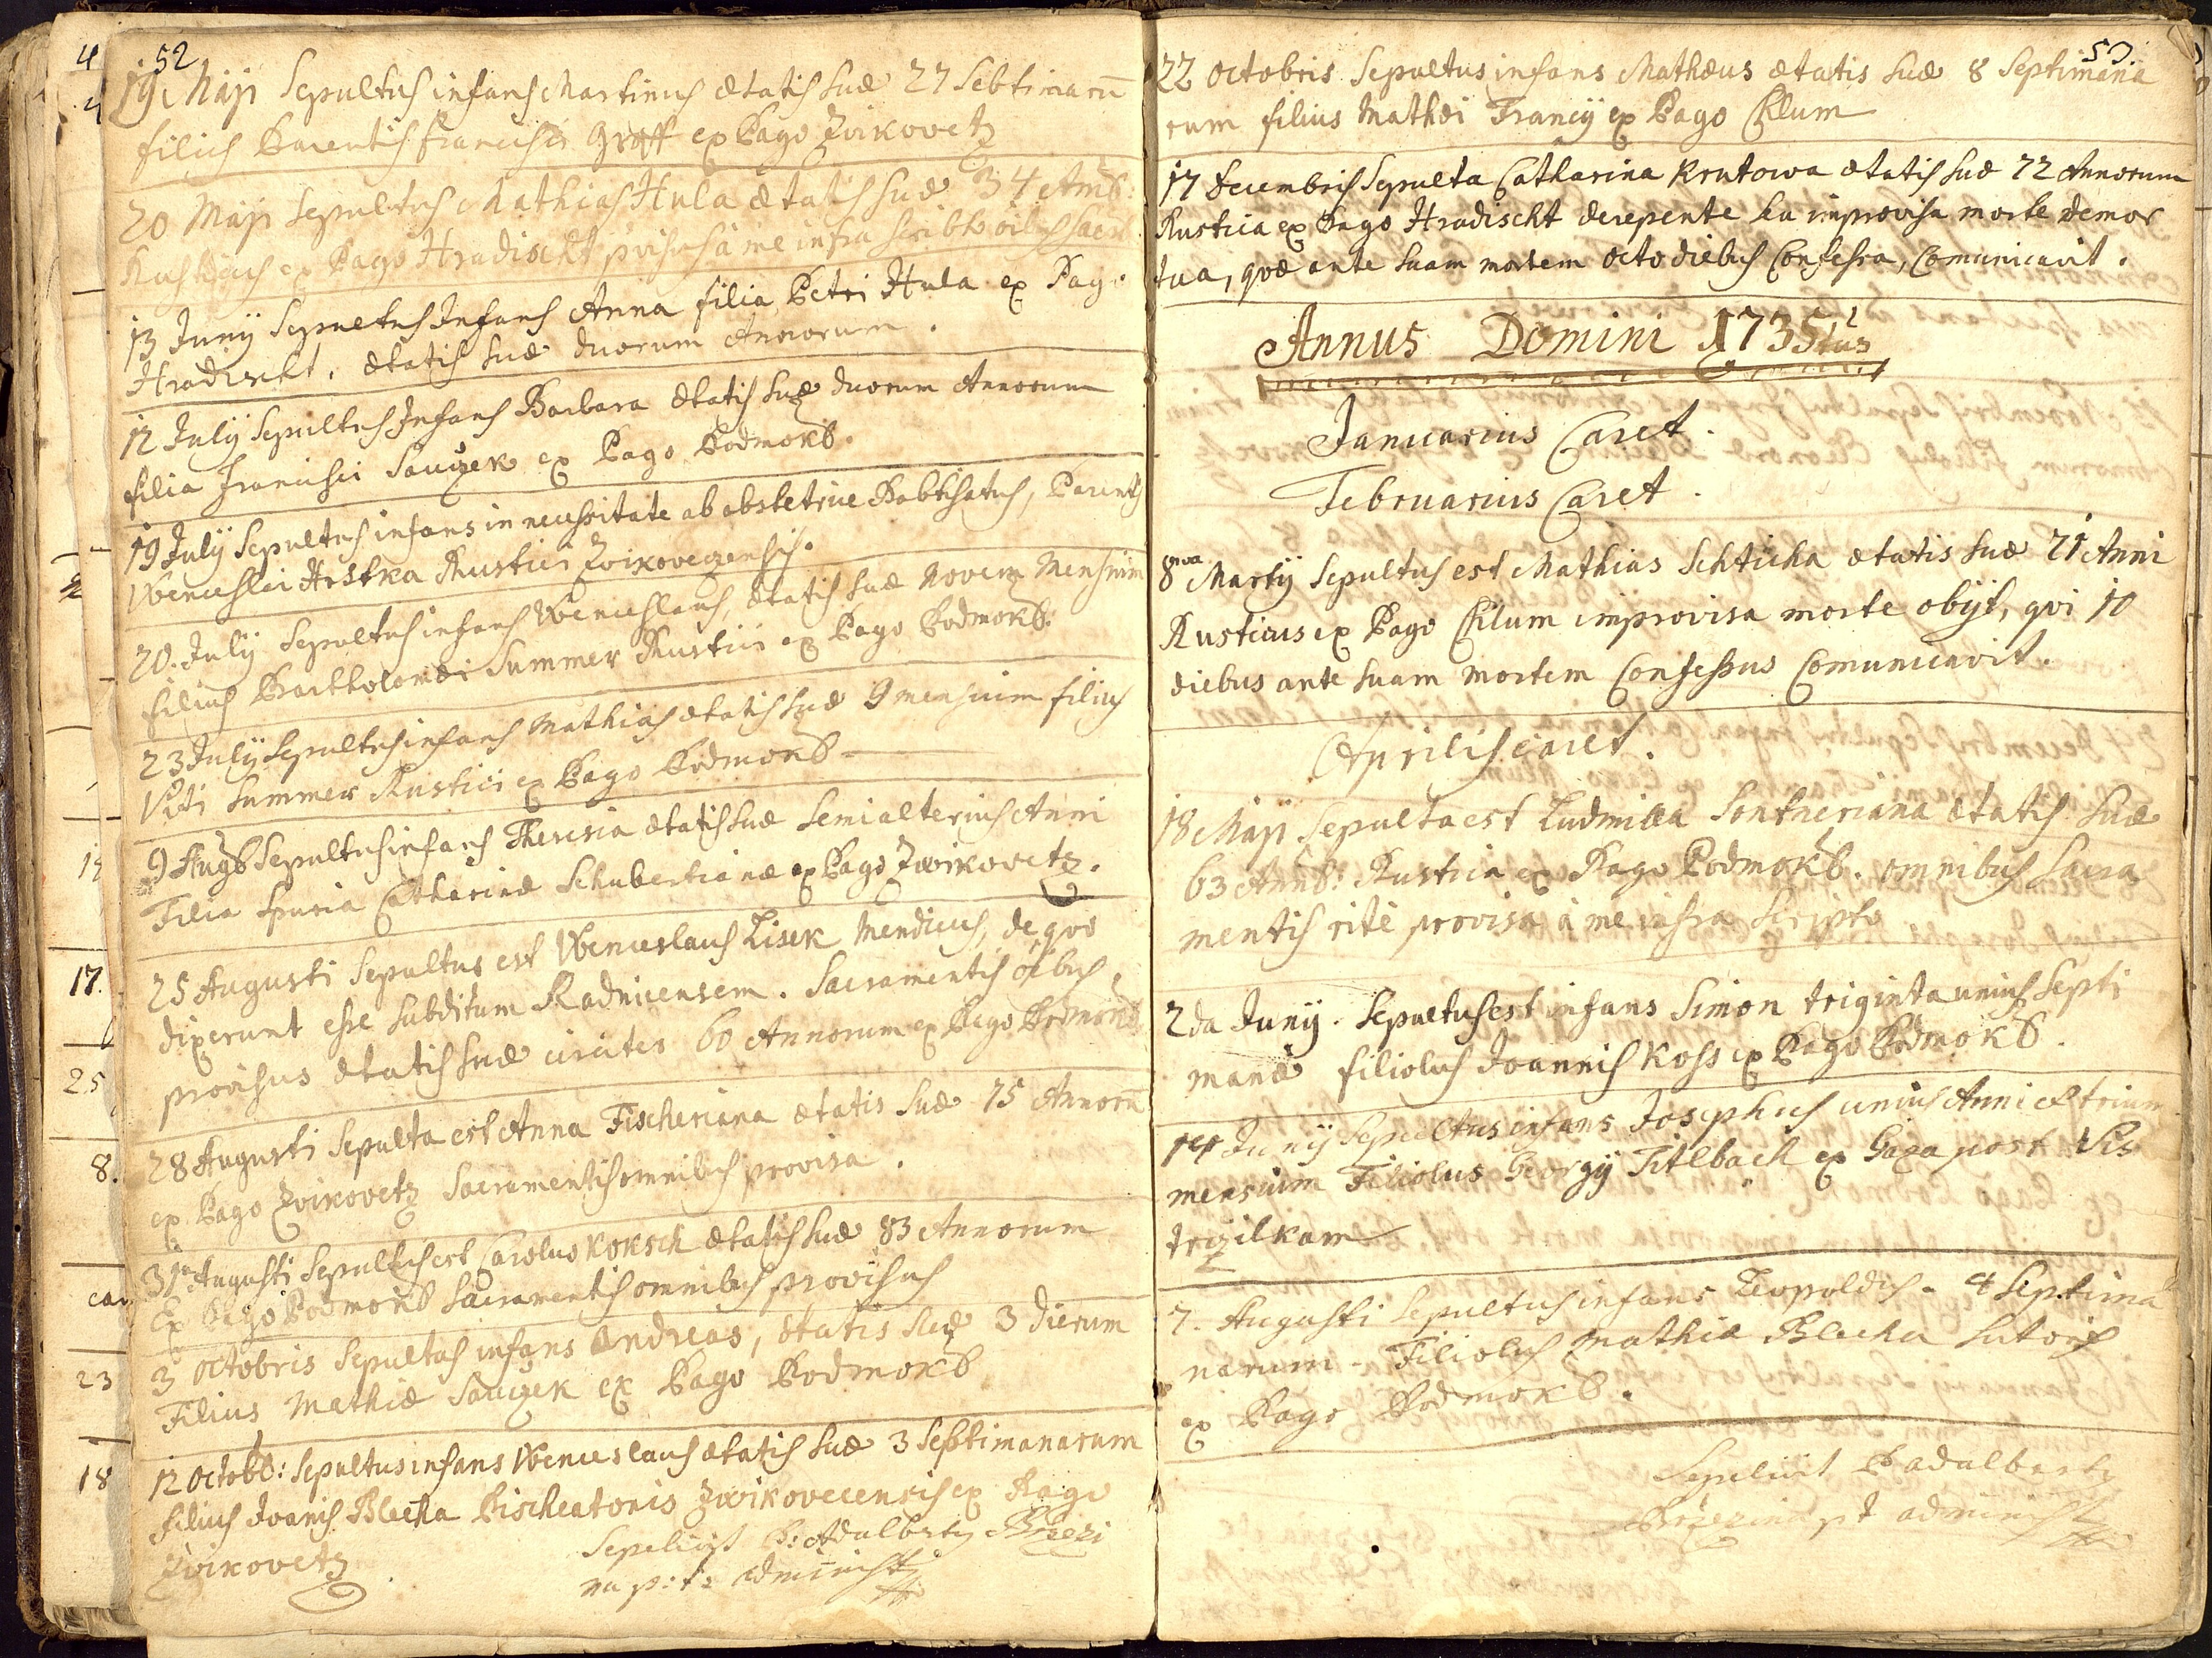 52
19 Maji Sepultus infans Martinus ætatis suæ 27 Sebtimarū
filius Parentis Francisci Groff ex Pago Zvikovetz
20 Maji Sepultus Mathias Hula ætatis suæ 34 Anõb:
Rusticus ex Pago Hradischt pvisus à me infra scribto oibus sacr
13 Junij Sepultus Infans Anna filia Petri Hula ex Pago
Hradischt, ætatis suæ duorum Annorum.
12 July Sepultus Infans Barbara ætatis suæ duorum Annorum
filia Francisci Sauczek ex Pago Podmokb.
19 July Sepultus infans in necessitate ab obstetrice Babtisatus, Parentis
Wenceslai Hrstka Rustici Zvikoveczensis.
20. July Sepultus infans Wenceslaus, ætatis suæ Novem Mensium
filius Bartholomæi Summer Rustici ex Pago Podmokb.
23 July Sepultus infans Mathias ætatis suæ 9 mensium filius
Viti Summer Rustici ex Pago Podmokb
9 Augb Sepultus infans Theresia ætatis suæ Semialterius Anni
Filia Spuria Catharinæ Schubertianæ ex Pago Zwikovetz.
25 Augusti Sepultus est Wenceslaus Lisek Mendicus, de quo
dixerunt esse subditum Radnicensem. Sacramentis oibus
provisus ætatis suæ circiter 60 Annorum ex Pago Podmokb
28 Augusti Sepulta est Anna Fischeriana ætatis suæ 75 Annorū
ex Pago Zvikovetz Sacramentis omnibus provisa.
31 Augusti Sepultus est Carolus Koksch ætatis suæ 83 Annorum
Ex Pago Podmokb Sacramentis omnibus provisus
3 Octobris Sepultus infans Andreas, ætatis suæ 3 dierum
Filius Mathiæ Sauczek ex Pago Podmokb
12 Octobb: Sepultus infans Wenceslaus ætatis suæ 3 Septimanarum
filius Joanis Blecha Pischcatoris Zwikovecensis ex Pago
Zvikovetz
Sepelivit P: Adalberty Brzezi
na p: t: administ
53.
22 Octobris Sepultus infans Mathæus ætatis suæ 8 Septimana
rum filius Mathæi Francij ex Pago Chlum
17 Decembris Sepulta Catharina Krutowa ætatis suæ 72 Annorum
Rustica ex Pago Hradischt derepente seu improvisa morte demor
tua, qvæ ante suam mortem octo diebus Confessa, Comunicavit.
Annus Domini 1735tus
Januarius Caret.
Februarius Caret.
8va Martij Sepultus est Mathias Schticha ætatis suæ 71 Anni
Rusticus ex Pago Chlum improvisa morte obijt, qvi 10
diebus ante suam mortem Confessus Comunicavit.
Aprilis caret.
18 Maji Sepulta est Ludmilla Sontneriana ætatis suæ
63 Annõ: Rustica ex Pago Podmokb. omnibus Sacra
mentis ritè provisa à me infra Scripto
2da Junij. Sepultus est infans Simon triginta unius Septi
manæ filiolus Joannis Koss ex Pago Podmokb.
14 Junij Sepultus infans Josephus unius Anni et trium
mensium Filiolus Georgij Titlbach ex Gaza post Sis
trzilkam
7. Augusti Sepultus infans Leopoldus - 4 Septima
narum - Filiolus Mathiæ Blecha Sutoris
ex Pago Podmokb.
Sepelivit P Adalberty
Brzezina pt administ
4
17.
25
8.
23
18